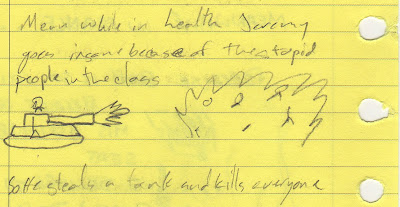 Mean while in health Jeremy
goes insane because of the stupid
people in the class
So He steals a tank and kills everyone